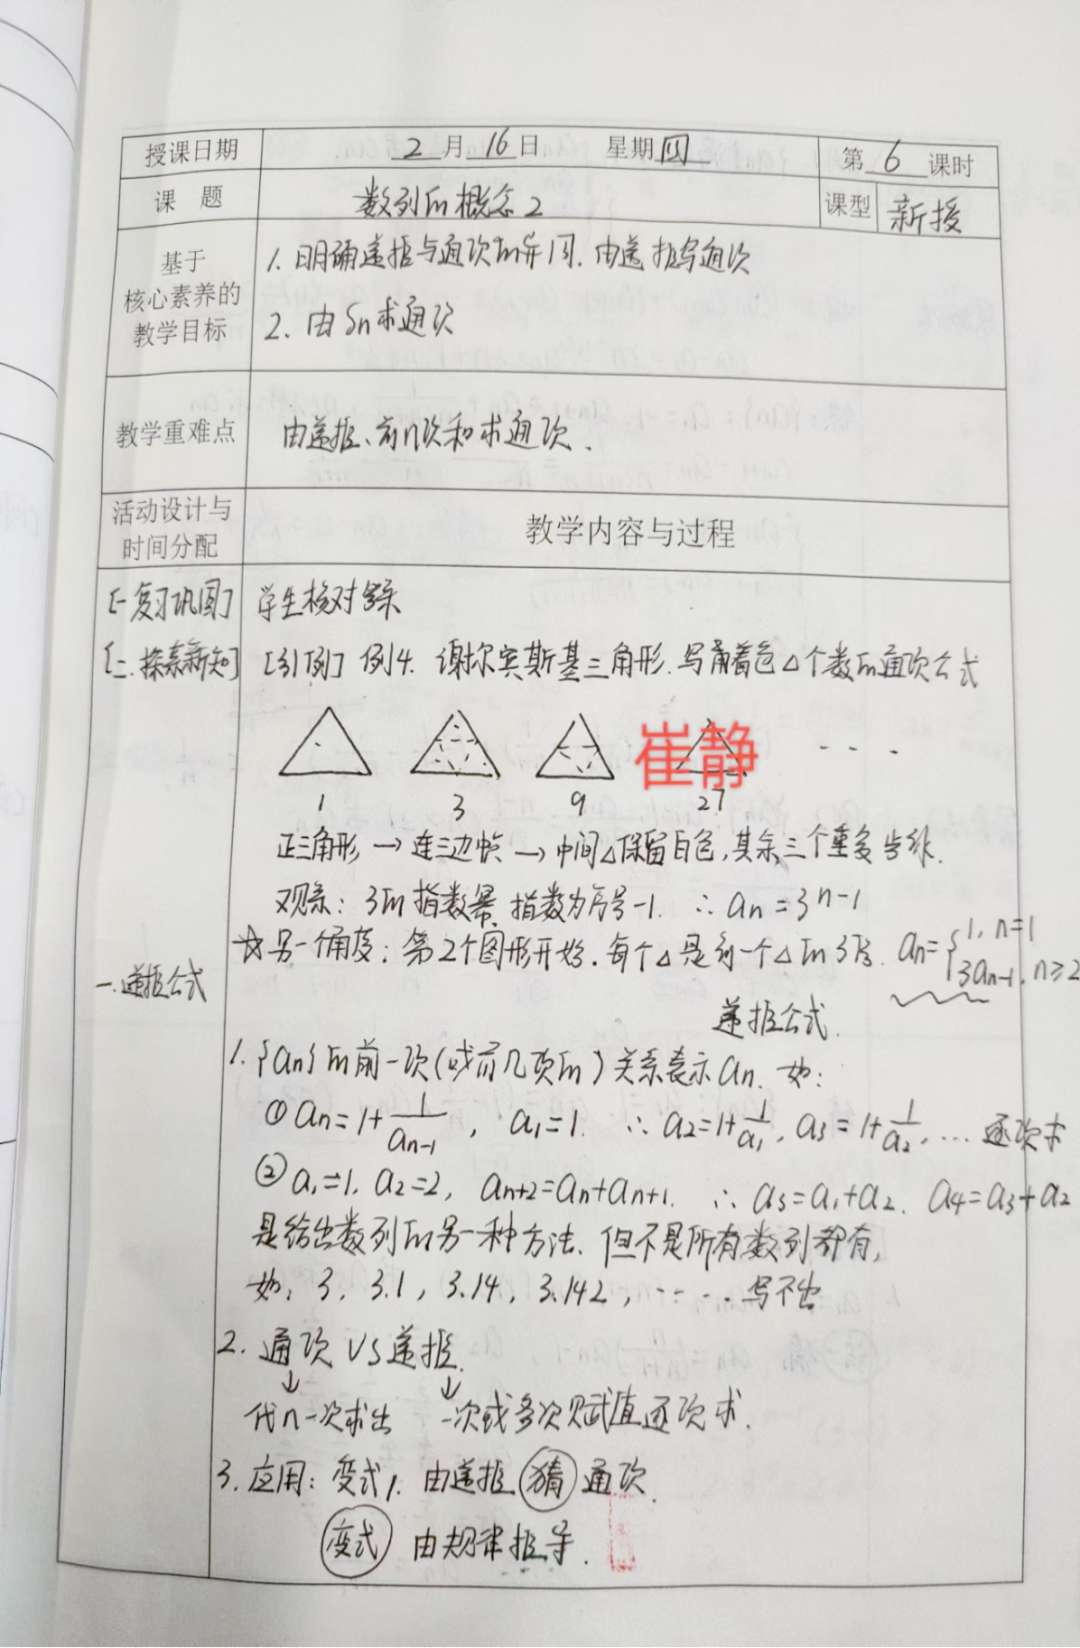 授课日期 2月16日 星期四 第6课时
课题 数列的概念2 课型 新授
基于
核心素养的
教学目标
1. 明确递推与通项的异同. 由递推写通项
2. 由Sn求通项
教学重难点 由递推、前n项和求通项.
活动设计与
时间分配
教学内容与过程
[一.复习巩固] 学生核对答案
[二.探索新知] [引例] 例4. 谢尔宾斯基三角形. 写着色△个数的通项公式
崔静
1 3 9 27
正三角形→连三边中点→中间△保留白色,其余三个重复步骤.
观察: 3的指数幂 指数为序号-1. ∴ an=3^{n-1}
☆另一个角度: 第2个图形开始. 每个△是前一个△的3倍. an={1, n=1
3an-1, n≥2
一.递推公式
递推公式.
1. {an}的前一项(或前几项的)关系表示an. 如:
① an=1+1/an-1, a1=1. ∴ a2=1+1/a1, a3=1+1/a2, … 逐项求
② a1=1. a2=2, an+2=an+an+1. ∴ a3=a1+a2. a4=a3+a2
是给出数列的另一种方法. 但不是所有数列都有,
如: 3, 3.1, 3.14, 3.142, ····· 写不出
2. 通项 VS 递推.
↓ ↓
代n一次求出 一次或多次赋值逐项求.
3. 应用: 变式1. 由递推 猜 通项.
变式 由规律推导.